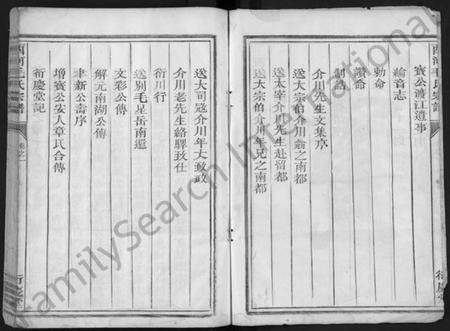 西河毛氏宗譜
賓公濺江遺事
綸音志
勅命
讃命
制誥
介川先生文集序
送大宗伯介川翁之南都
送太宰介川先生赴留都
送大宗伯介川年兄之南都
送大司冦介川年大致政
介川老先生絡驛致仕
衍川行
送别毛星岳南還
文彩公傳
解元南湖公傳
聿新公壽序
增賓公安人章氏合傳
衍慶堂記
西河毛氏宗譜
卷之一
衍慶堂
FamilySearch International